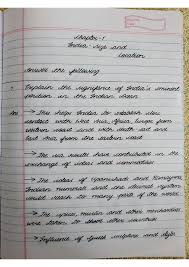 Chapter-1
India size and
location
Answer the following
Explain the significance of India's eminent
position in the Indian Ocean
Ans → This helps India to establish close
contact with West Asia, Africa, Europe from
western coast and with south-east and
East Asia from the eastern coast
→ The sea route have contributed in the
exchange of ideas and commodities
→ The ideas of Upanishads and Ramayana,
Indian numerals and the decimal system
could reach to many parts of the world
→ The spices, muslin and other merchandise
were taken to other countries
→ Influence of Greek sculpture and style